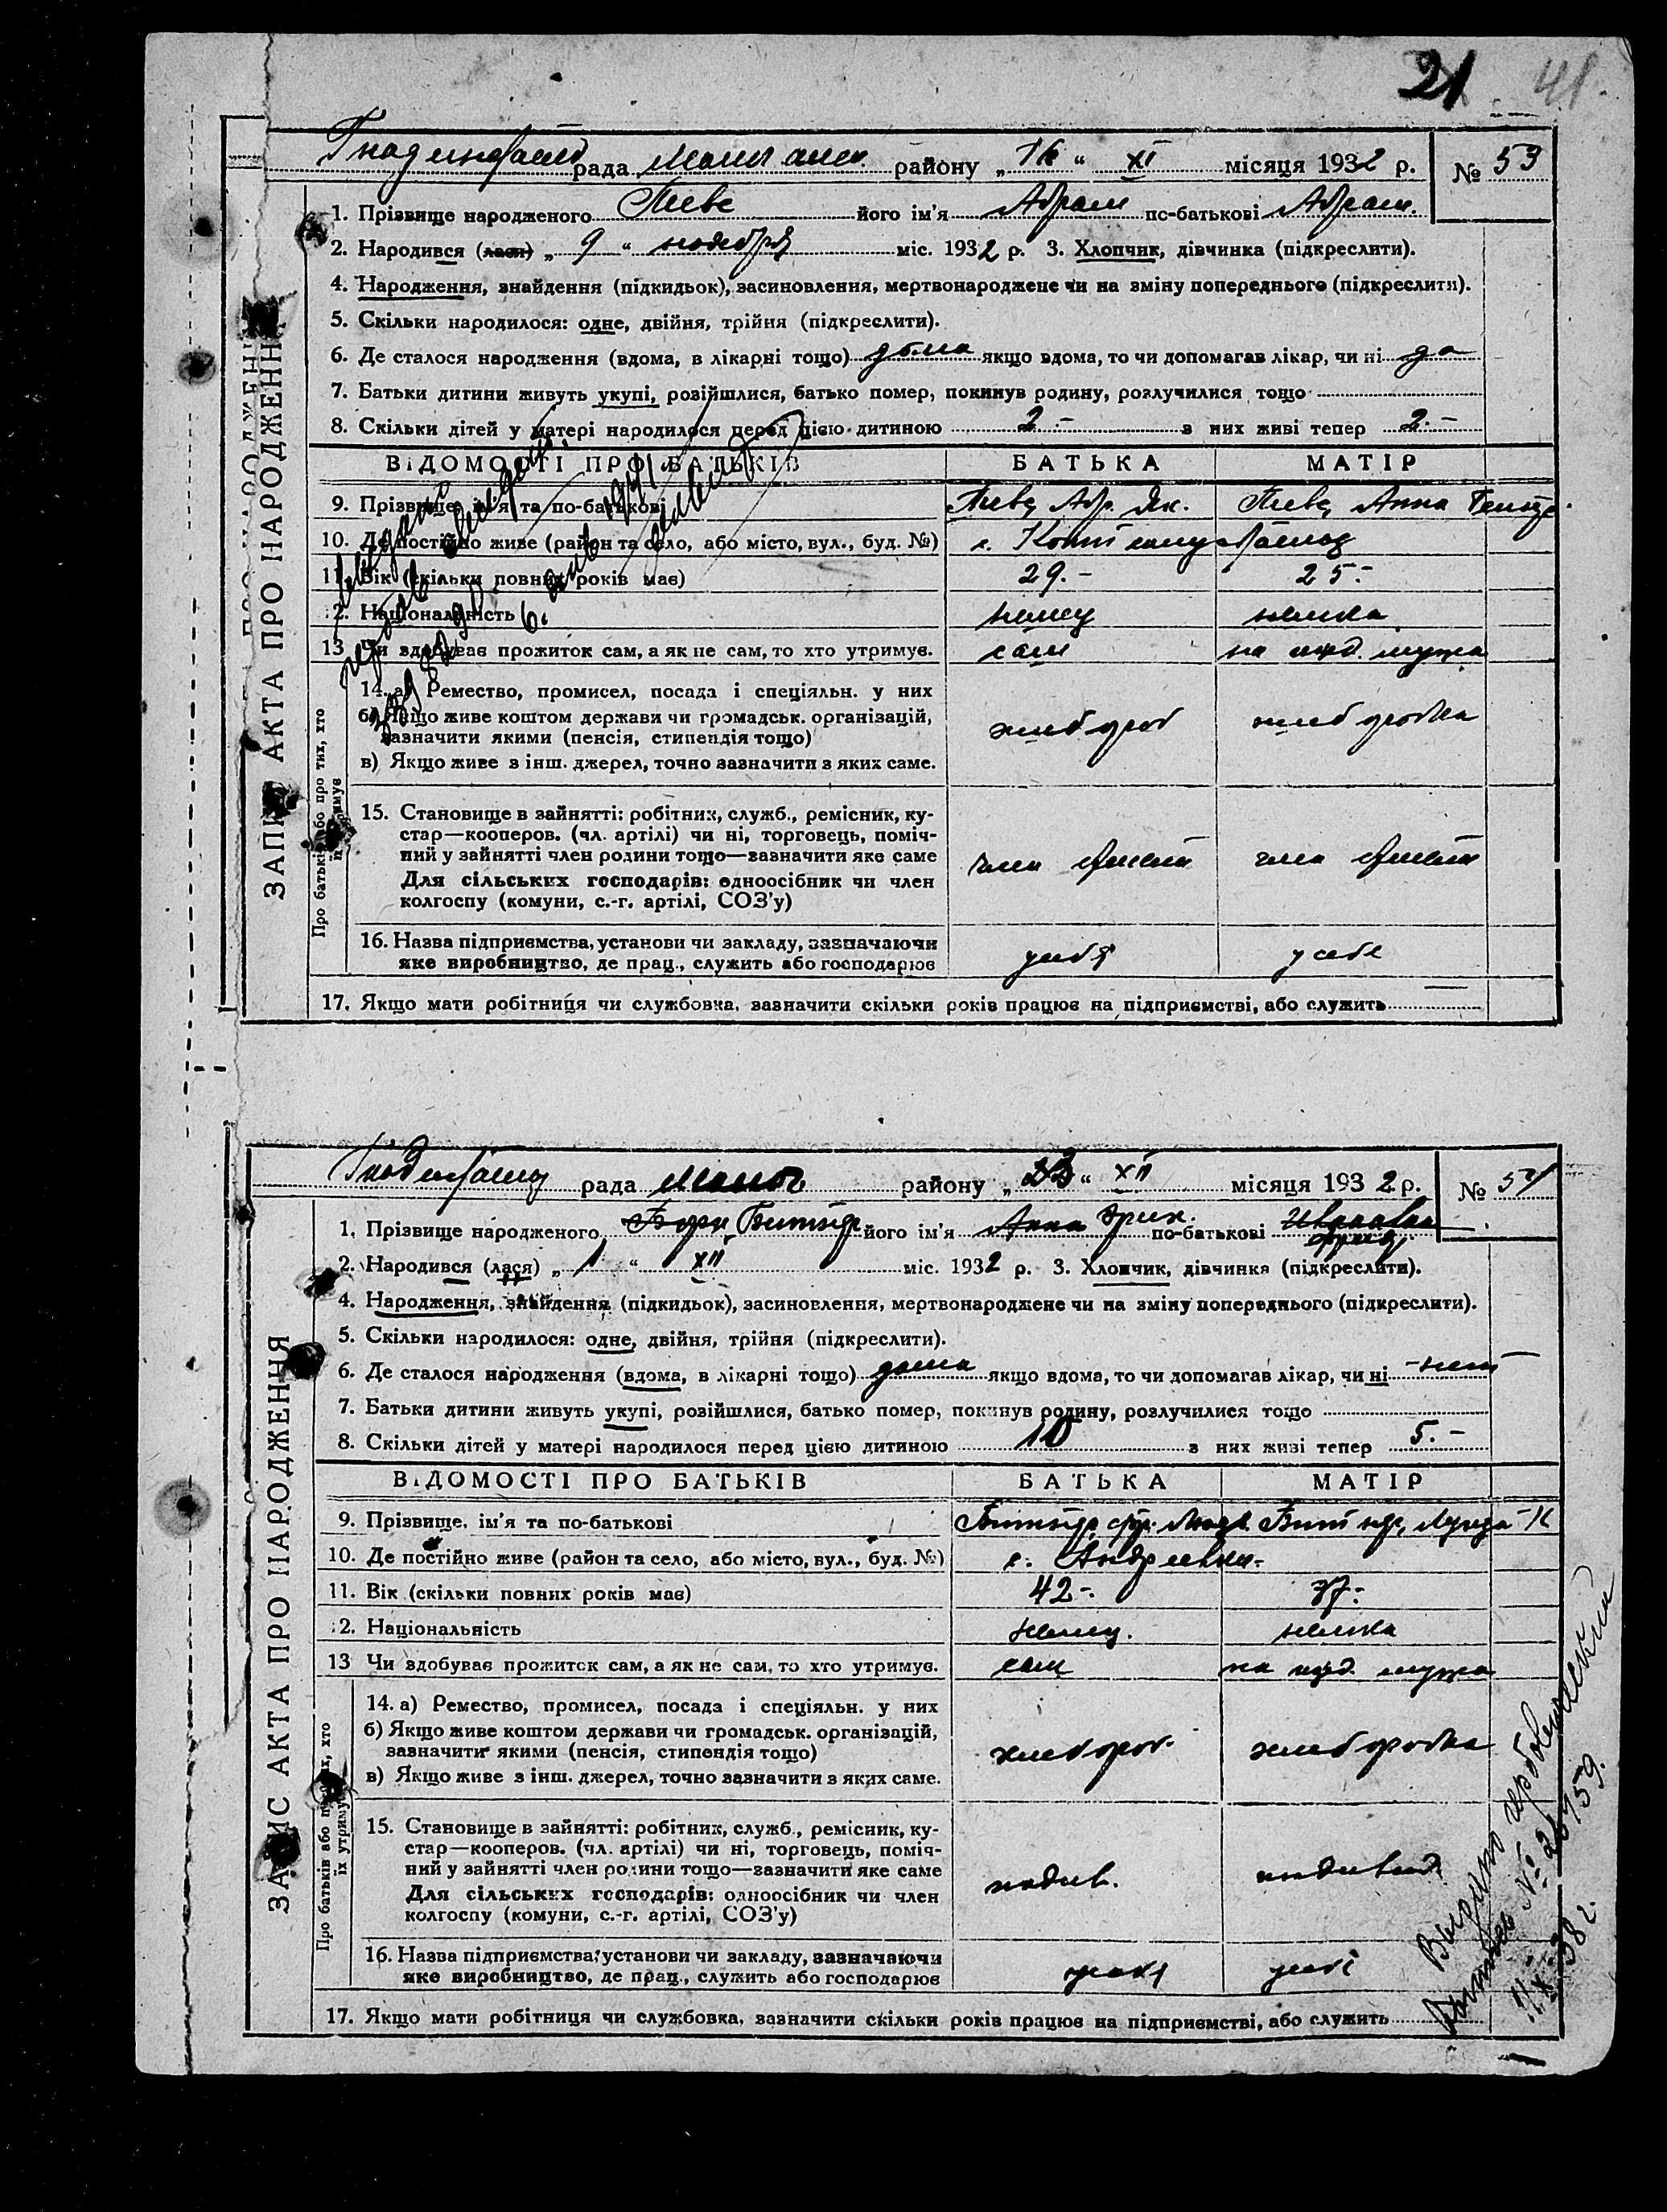 21 41.
рада района району „ 16 “ XI місяця 1932 р. № 53
1. Прізвище народженого Тиве його ім'я Абрам по-батькові Абрам.
2. Народився (лася) „ 9 “ ноября міс. 1932 р. 3. Хлопчик, дівчинка (підкреслити).
4. Народження, знайдення (підкидьок), засиновлення, мертвонароджене чи на зміну попереднього (підкреслити).
5. Скільки народилося: одне, двійня, трійня (підкреслити).
6. Де сталося народження (вдома, в лікарні тощо) дома якщо вдома, то чи допомагав лікар, чи ні да
7. Батьки дитини живуть укупі, розійшлися, батько помер, покинув родину, розлучилися тощо
8. Скільки дітей у матері народилося перед цією дитиною 2.- з них живі тепер 2.-
ВІДОМОСТІ ПРО БАТЬКІВ БАТЬКА МАТІР
9. Прізвище, ім'я та по-батькові Тиве, Абр. Як. Тиве, Анна
10. Де постійно живе (район та село, або місто, вул., буд. №) с.
11. Вік (скільки повних років має) 29.- 25.-
12. Національність немец немка
13 Чи здобуває прожиток сам, а як не сам, то хто утримує. сам на ижд. мужа
14. а) Ремество, промисел, посада і спеціяльн. у них
б) Якщо живе коштом держави чи громадськ. організацій, хлебороб хлеборобка
зазначити якими (пенсія, стипендія тощо)
в) Якщо живе з інш. джерел, точно зазначити з яких саме.
15. Становище в зайнятті: робітник, служб., ремісник, ку-
стар—кооперов. (чл. артілі) чи ні, торговець, поміч-
ний у зайнятті член родини тощо—зазначити яке саме член артели член артели
Для сільських господарів: одноосібник чи член
колгоспу (комуни, с.-г. артілі, СОЗ'у)
16. Назва підприємства, установи чи закладу, зазначаючи
яке виробництво, де прац., служить або господарює у себя у себе
17. Якщо мати робітниця чи службовка, зазначити скільки років працює на підприємстві, або служить
ЗАПИС АКТА ПРО НАРОДЖЕННЯ
Про батьків або про тих, хто
їх утримує
рада району „ 23 “ XII місяця 1932 р. № 54
1. Прізвище народженого Битнер його ім'я Анна Эрих. по-батькові Ивановна
2. Народився (лася) „ 1 “ XII міс. 1932 р. 3. Хлопчик, дівчинка (підкреслити).
4. Народження, знайдення (підкидьок), засиновлення, мертвонароджене чи на зміну попереднього (підкреслити).
5. Скільки народилося: одне, двійня, трійня (підкреслити).
6. Де сталося народження (вдома, в лікарні тощо) дома якщо вдома, то чи допомагав лікар, чи ні - нет
7. Батьки дитини живуть укупі, розійшлися, батько помер, покинув родину, розлучилися тощо
8. Скільки дітей у матері народилося перед цією дитиною 10 з них живі тепер 5.-
ВІДОМОСТІ ПРО БАТЬКІВ БАТЬКА МАТІР
9. Прізвище, ім'я та по-батькові Битнер, Битнер,
10. Де постійно живе (район та село, або місто, вул., буд. №) с. Андреевка.-
11. Вік (скільки повних років має) 42.- 37.-
12. Національність немец. немка
13 Чи здобуває прожиток сам, а як не сам, то хто утримує. сам на ижд. мужа
14. а) Ремество, промисел, посада і спеціяльн. у них
б) Якщо живе коштом держави чи громадськ. організацій,
зазначити якими (пенсія, стипендія тощо) хлебороб. хлеборобка
в) Якщо живе з інш. джерел, точно зазначити з яких саме.
15. Становище в зайнятті: робітник, служб., ремісник, ку-
стар—кооперов. (чл. артілі) чи ні, торговець, поміч-
ний у зайнятті член родини тощо—зазначити яке саме индив. индивид.
Для сільських господарів: одноосібник чи член
колгоспу (комуни, с.-г. артілі, СОЗ'у)
16. Назва підприємства, установи чи закладу, зазначаючи
яке виробництво, де прац., служить або господарює у себя у себе
17. Якщо мати робітниця чи службовка, зазначити скільки років працює на підприємстві, або служить
ЗАПИС АКТА ПРО НАРОДЖЕННЯ
Про батьків або про тих, хто
їх утримує